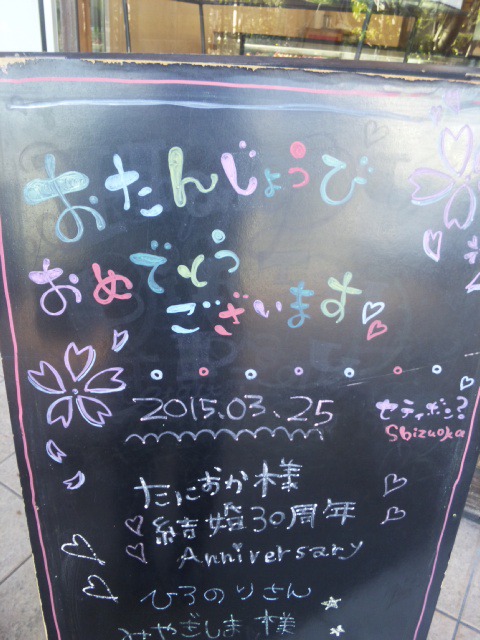 おたんじょうび
おめでとう
ございます
2015.03.25
セティボン?
Shizuoka
たにおか様
結婚30周年
Anniversary
ひろのりさん
みやぎしま様